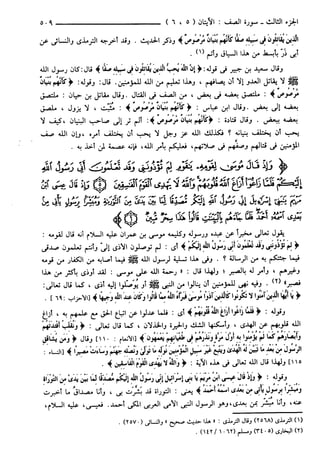 الجزء الثالث - سورة الصف : الآيتان ( ٥ ، ٦ ) ٥٠٩
الذين يقاتلون في سبيله صفا كأنهم بنيان مرصوص ﴾ وذكر الحديث . وقد أخرجه الترمذي والنسائي عن
أبي ذر بأبسط من هذا السياق وأتم (١) .
وقال سعيد بن جبير في قوله : ﴿ إن الله يحب الذين يقاتلون في سبيله صفا ﴾ قال : كان رسول الله
ﷺ لا يقاتل العدو إلا أن يصافهم ، وهذا تعليم من الله للمؤمنين . قال : وقوله : ﴿ كأنهم بنيان
مرصوص ﴾ : ملتصق بعضه في بعض ، من الصف في القتال . وقال مقاتل بن حيان : ملتصق
بعضه إلى بعض . وقال ابن عباس : ﴿ كأنهم بنيان مرصوص ﴾ : مثبت ، لا يزول ، ملصق
بعضه ببعض . وقال قتادة : ﴿ كأنهم بنيان مرصوص ﴾ : ألم تر إلى صاحب البنيان ، كيف لا
يحب أن يختلف بنيانه ؟ فكذلك الله عز وجل لا يحب أن يختلف أمره ، وإن الله صف
المؤمنين في قتالهم وصفهم في صلاتهم ، فعليكم بأمر الله ، فإنه عصمة لمن أخذ به .
﴿ وإذ قال موسى لقومه يا قوم لم تؤذونني وقد تعلمون أني رسول الله
إليكم فلما زاغوا أزاغ الله قلوبهم والله لا يهدي القوم الفاسقين (٥) وإذ قال عيسى ابن
مريم يا بني إسرائيل إني رسول الله إليكم مصدقا لما بين يدي من التوراة ومبشرا برسول
يأتي من بعدي اسمه أحمد فلما جاءهم بالبينات قالوا هذا سحر مبين (٦) ﴾
يقول تعالى مخبرا عن عبده ورسوله وكليمه موسى بن عمران عليه السلام أنه قال لقومه :
﴿ لم تؤذونني وقد تعلمون أني رسول الله إليكم ﴾ أي : لم توصلون الأذى إلي وأنتم تعلمون صدقي
فيما جئتكم به من الرسالة ؟ . وفي هذا تسلية لرسول الله ﷺ فيما أصابه من الكفار من قومه
وغيرهم ، وأمر له بالصبر ؛ ولهذا قال : « رحمة الله على موسى : لقد أوذي بأكثر من هذا
فصبر » (٢) . وفيه نهي للمؤمنين أن ينالوا من النبي ﷺ أو يوصلوا إليه أذى ، كما قال تعالى :
﴿ يا أيها الذين آمنوا لا تكونوا كالذين آذوا موسى فبرأه الله مما قالوا وكان عند الله وجيها ﴾ [ الأحزاب : ٦٩ ] .
وقوله : ﴿ فلما زاغوا أزاغ الله قلوبهم ﴾ أي : فلما عدلوا عن اتباع الحق مع علمهم به ، أزاغ
الله قلوبهم عن الهدى ، وأسكنها الشك والحيرة والخذلان ، كما قال تعالى : ﴿ ونقلب أفئدتهم
وأبصارهم كما لم يؤمنوا به أول مرة ونذرهم في طغيانهم يعمهون ﴾ [ الأنعام : ١١٠ ] وقال ﴿ ومن يشاقق
الرسول من بعد ما تبين له الهدى ويتبع غير سبيل المؤمنين نوله ما تولى ونصله جهنم وساءت مصيرا ﴾ [ النساء :
١١٥ ] ولهذا قال الله تعالى في هذه الآية : ﴿ والله لا يهدي القوم الفاسقين ﴾ .
وقوله : ﴿ وإذ قال عيسى ابن مريم يا بني إسرائيل إني رسول الله إليكم مصدقا لما بين يدي من التوراة
ومبشرا برسول يأتي من بعدي اسمه أحمد ﴾ يعني : التوراة قد بشرت بي ، وأنا مصداق ما أخبرت
عنه ، وأنا مبشر بمن بعدي ، وهو الرسول النبي الأمي العربي المكي أحمد . فعيسى ، عليه السلام ،
(١) الترمذي (٢٥٦٨) وقال الترمذي : « هذا حديث صحيح » والنسائي (٢٥٧٠) .
(٢) البخاري (٣٤٠٥) ومسلم (١٠٦٢ / ١٤٢) .